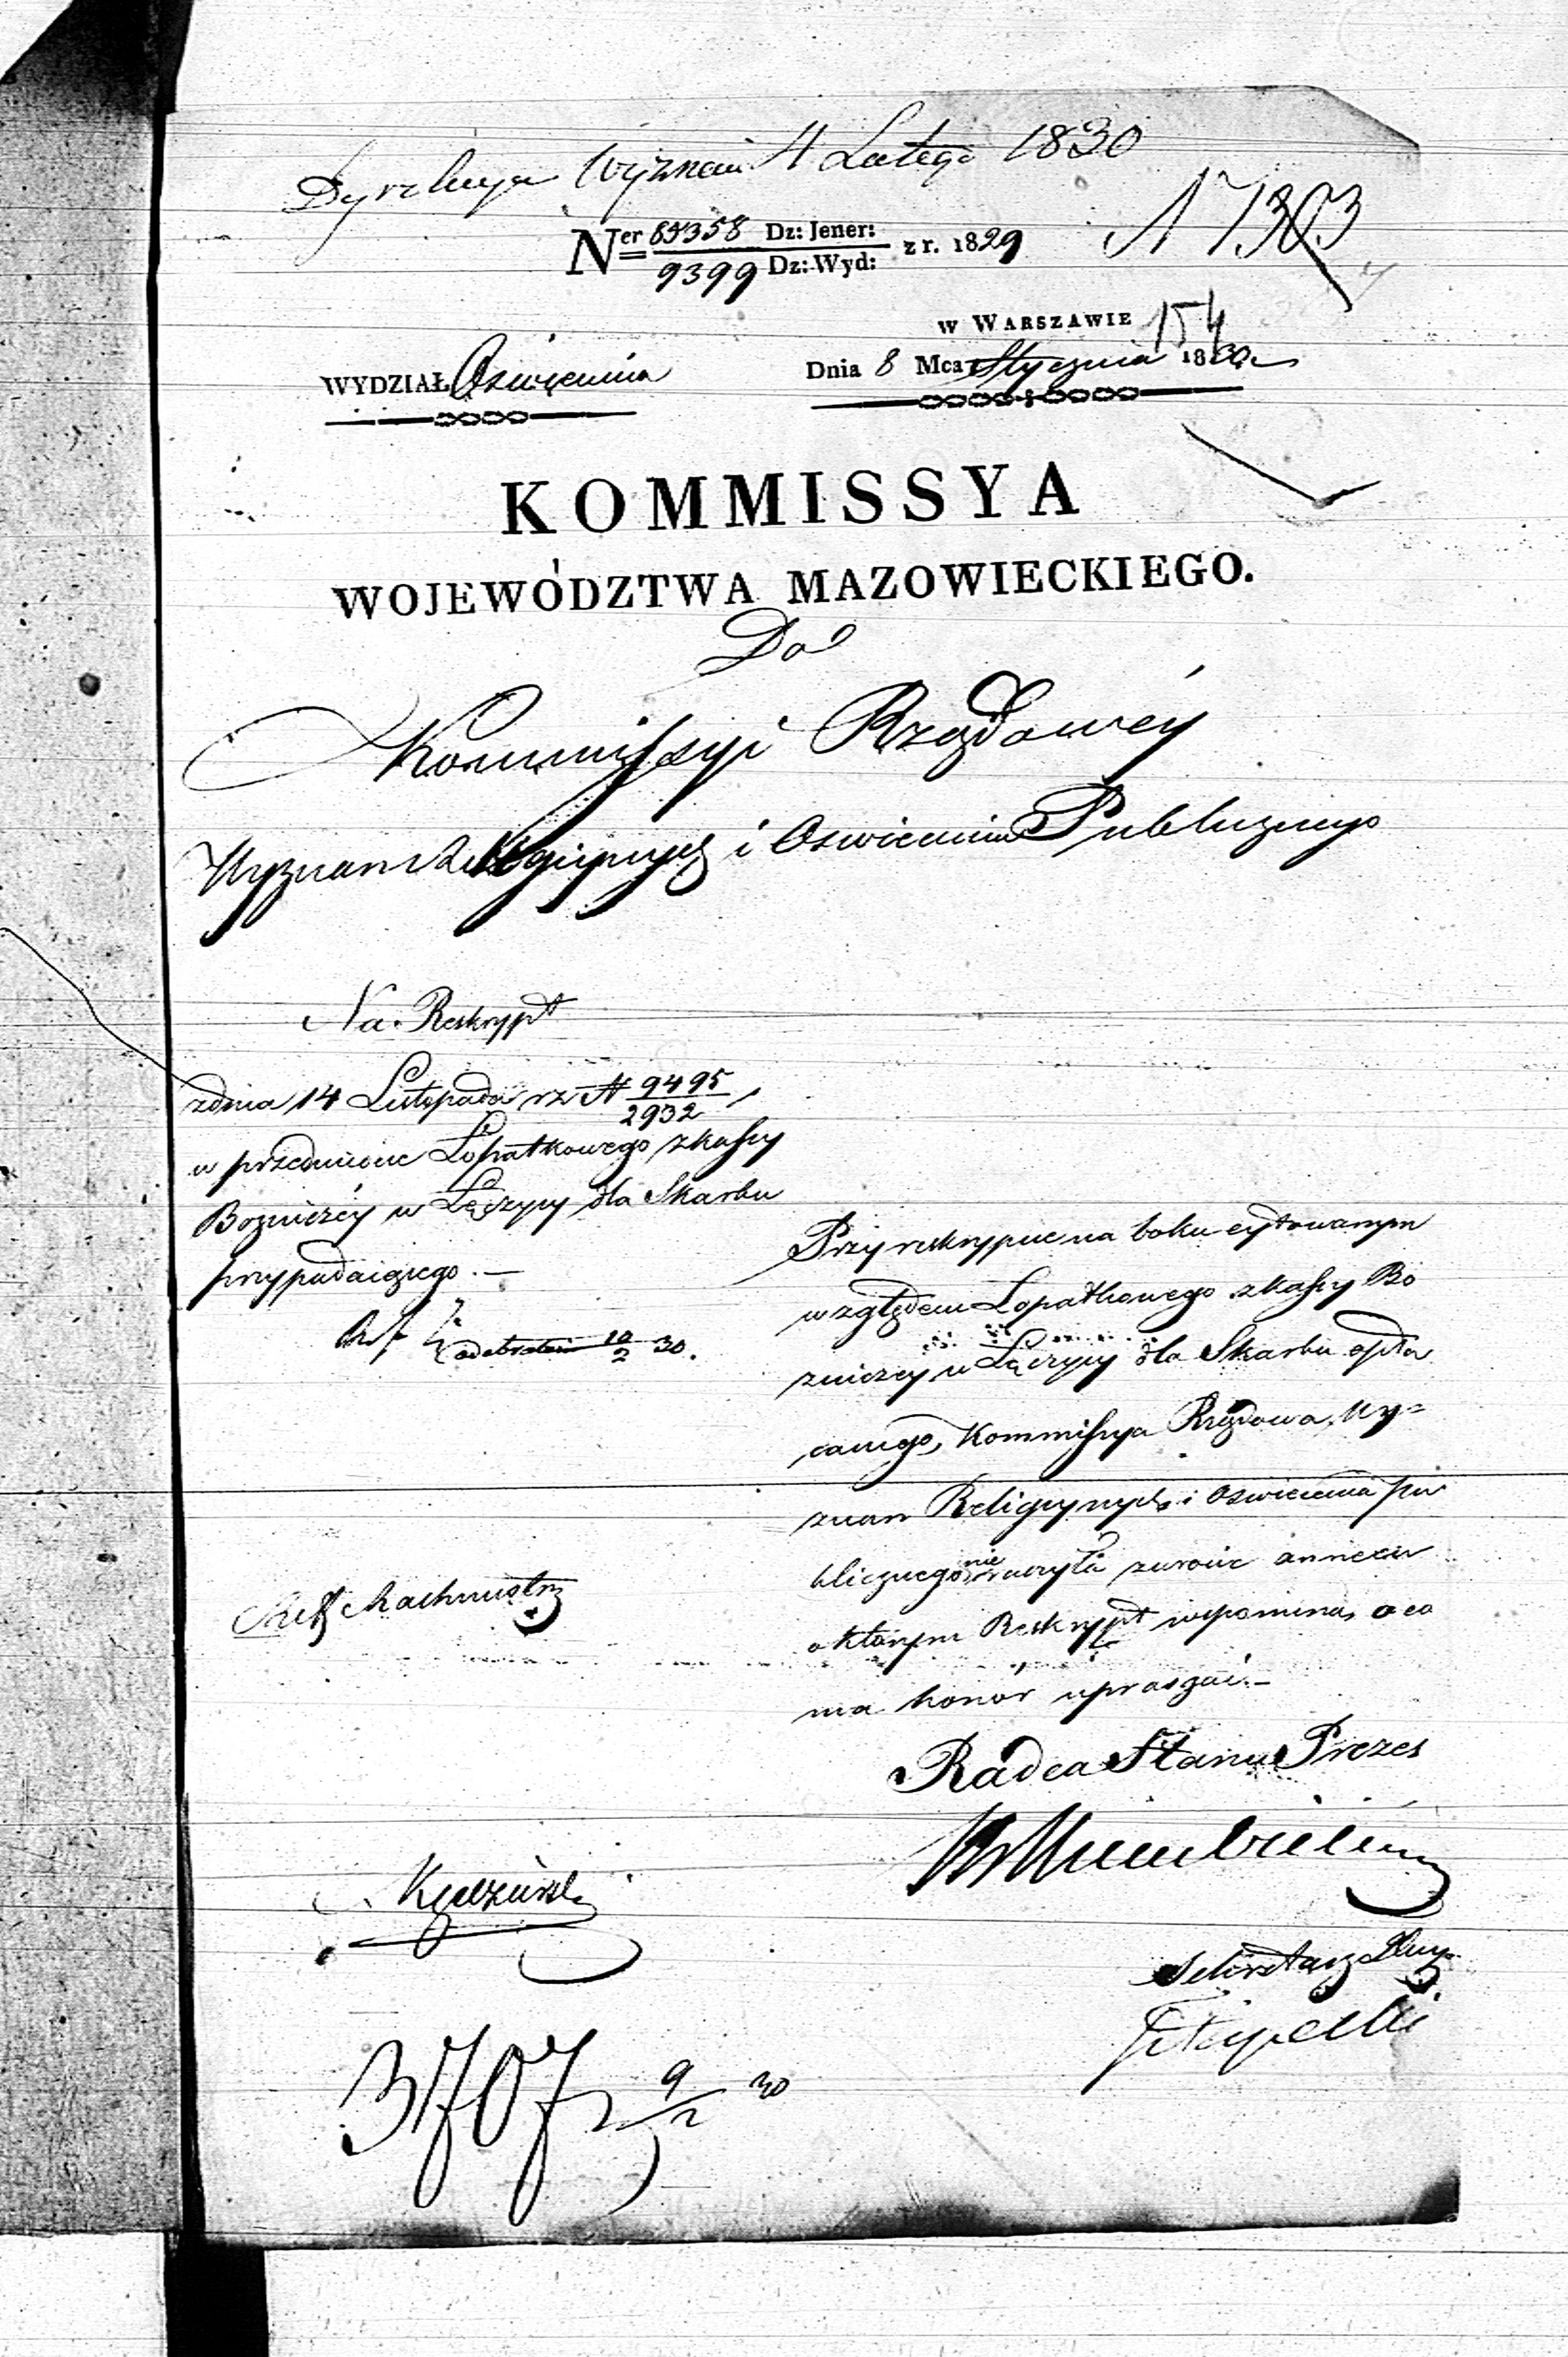 Dyrekcya Wyznań 4 Lutego 1830
N 1303
Ner 85358 Dz: Jener: z r. 1829
9399 Dz: Wyd:
154
w WARSZAWIE
WYDZIAŁ Oświecenia
Dnia 8 Mca Stycznia 1830
KOMMISSYA
WOJEWÓDZTWA MAZOWIECKIEGO.
Do
Kommissyi Rządowéy
Wyznań Religiynych i Oswiecenia Publicznego
Na Reskrypt
z dnia 14 Listopada rz N 9495
2932
w przedmiocie Łopatkowego z kassy
Bozniczéy w Łęczycy dla Skarbu
przypadaiącego. —
odebrałem 10/2 30.
Przy reskrypcie na boku cytowanym
względem Łopatkowego z kassy Bo
zniczey w Łęczycy dla Skarbu opła
canego, Kommissya Rządowa Wy=
znań Religiynych i Oswiecenia Pu
blicznego nie raczyła zwrócić annexu
o którym Reskrypt wspomina, o co
ma honór upraszać. —
Radca Stanu Prezes
Sekretarz Jlny
Filipecki
3707 9/2 30